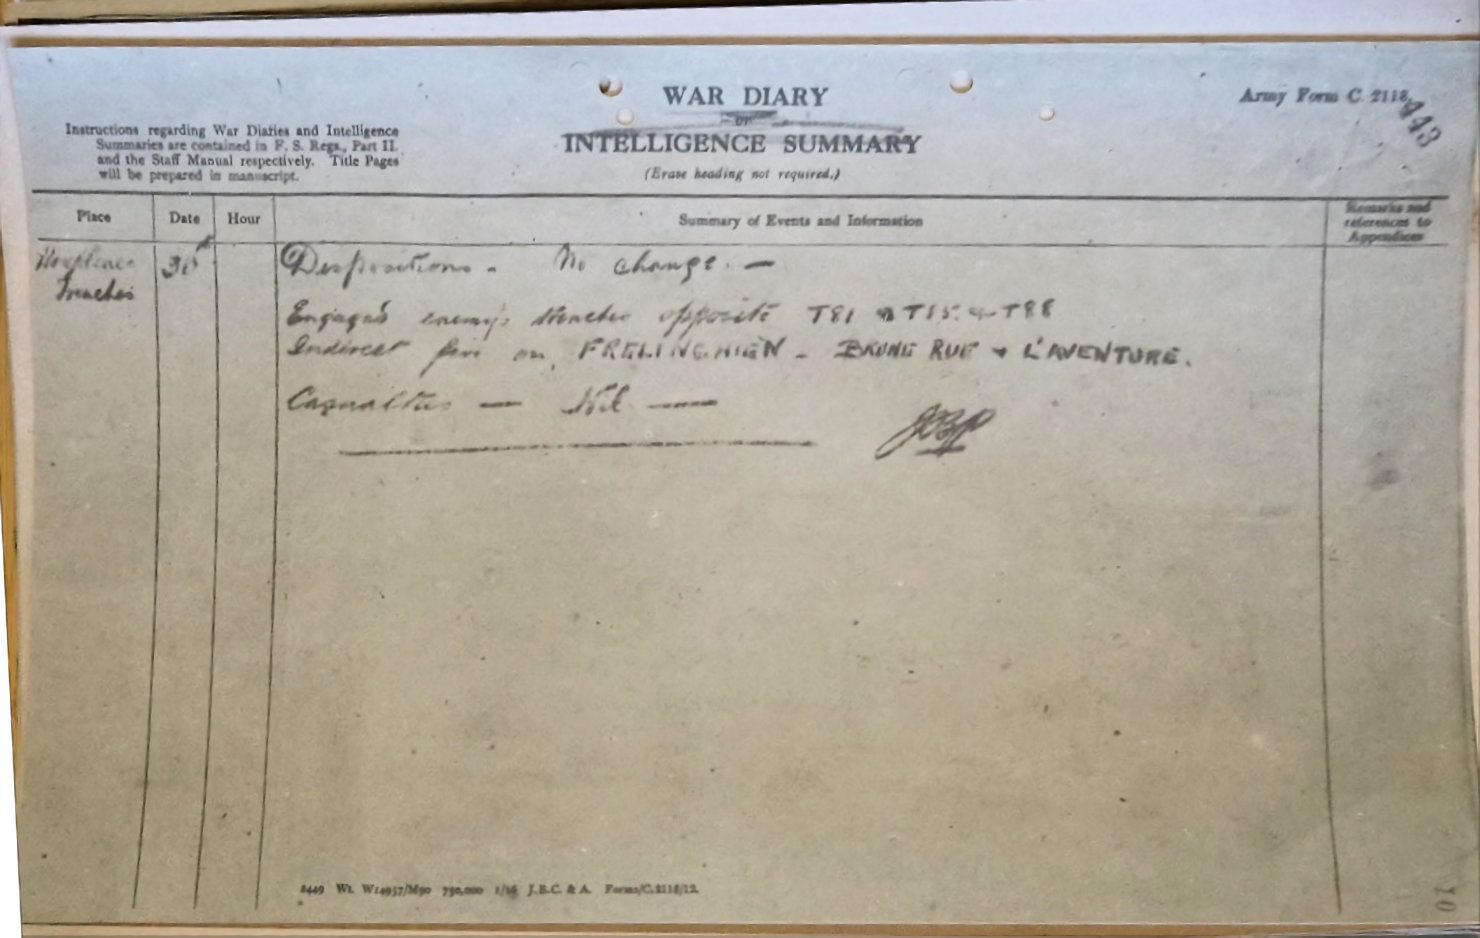 WAR DIARY
or
INTELLIGENCE SUMMARY
(Erase heading not required.)
Army Form C. 2118.
443
Instructions regarding War Diaries and Intelligence
Summaries are contained in F. S. Regs., Part II.
and the Staff Manual respectively. Title Pages
will be prepared in manuscript.
Place
Date
Hour
Summary of Events and Information
Remarks and
references to
Appendices
Houplines
Trenches
30th
Dispositions. No change. —
Engaged enemy's trenches opposite T81 T85 & T88
Indirect fire on FRELINGHIEN - BRUNE RUE + L'AVENTURE.
Casualties — Nil —
2449 Wt. W14957/M90 750,000 1/16 J.B.C. & A. Forms/C.2118/12.
10